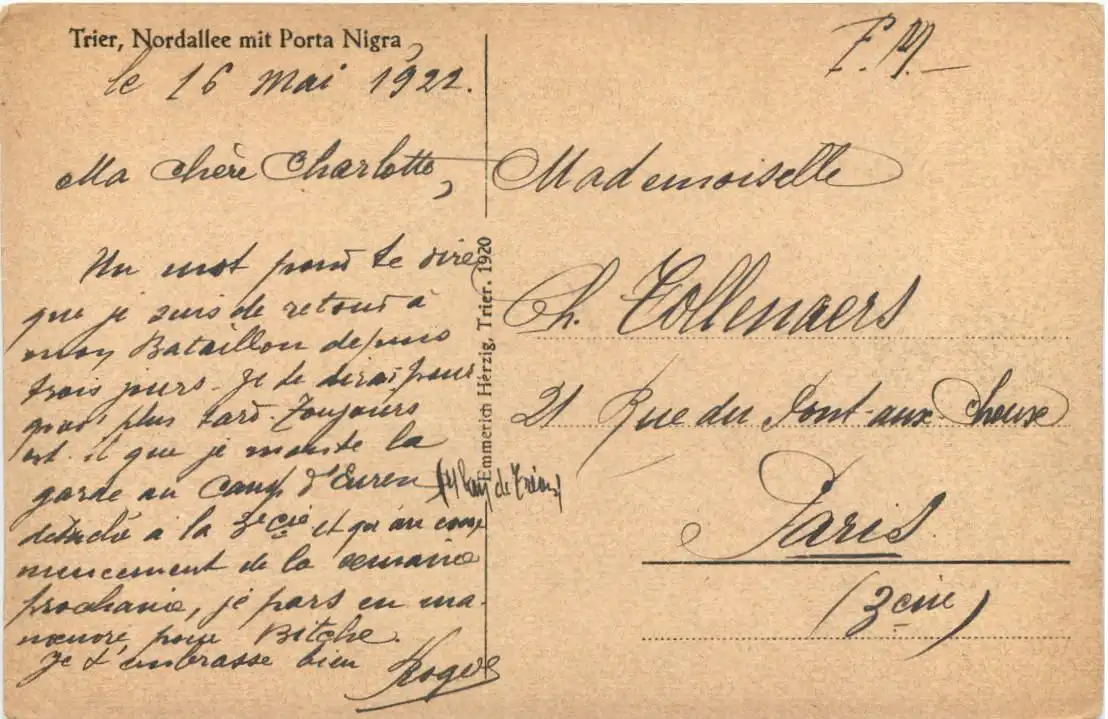 Trier, Nordallee mit Porta Nigra
le 16 Mai 1922.
F.M.
Ma chère Charlotte,
Un mot pour te dire
que je suis de retour à
mon Bataillon depuis
trois jours. Je te dirai pour
quoi plus tard. Toujours
est-il que je monte la
garde au camp d'Euren
(4 km de Trèves)
détaché à la 3e cie et qu'au com
mencement de la semaine
prochaine, je pars en ma-
nœuvre pour Bitche.
Je t'embrasse bien
Roger
Emmerich Herzig, Trier. 1920
Mademoiselle
Ch. Tollenaers
21 Rue du Pont-aux-Choux
Paris
(3eme)